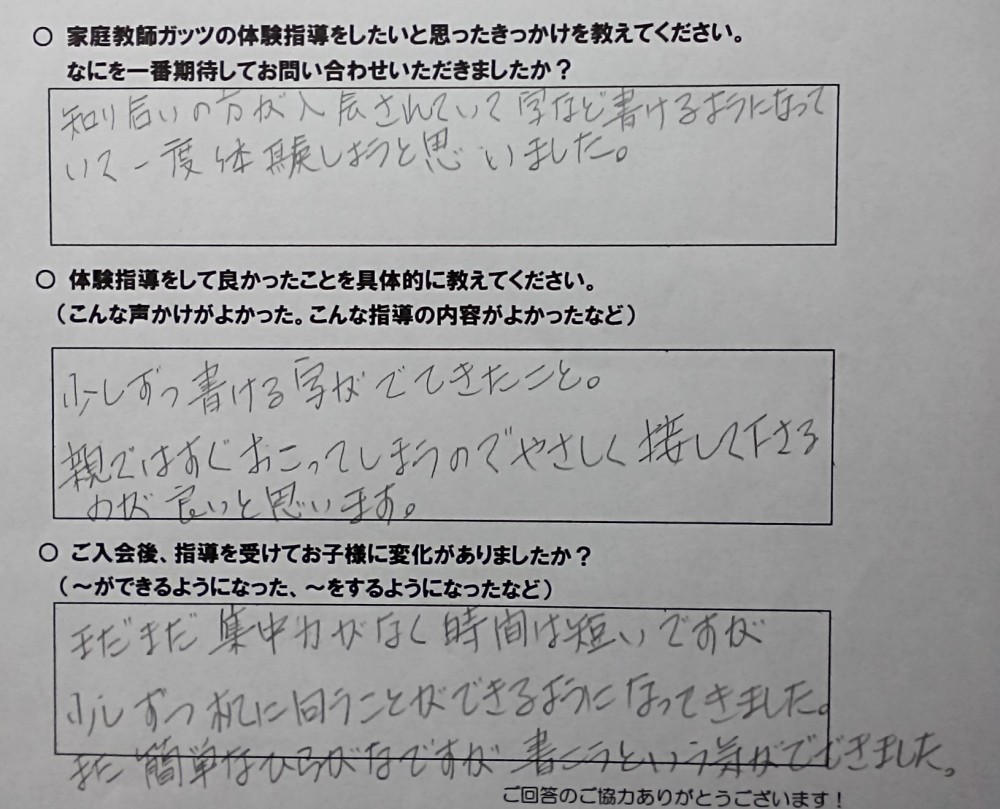 ○ 家庭教師ガッツの体験指導をしたいと思ったきっかけを教えてください。
なにを一番期待してお問い合わせいただきましたか？
知り合いの方が入会されていて字など書けるようになって
いて一度体験しようと思いました。
○ 体験指導をして良かったことを具体的に教えてください。
（こんな声かけがよかった。こんな指導の内容がよかったなど）
少しずつ書ける字がでてきたこと。
親ではすぐおこってしまうのでやさしく接して下さる
のが良いと思います。
○ ご入会後、指導を受けてお子様に変化がありましたか？
（～ができるようになった、～をするようになったなど）
まだまだ集中力がなく時間は短いですが
少しずつ机に向うことができるようになってきました。
まだ簡単なひらがなですが書こうという気がでてきました。
ご回答のご協力ありがとうございます！